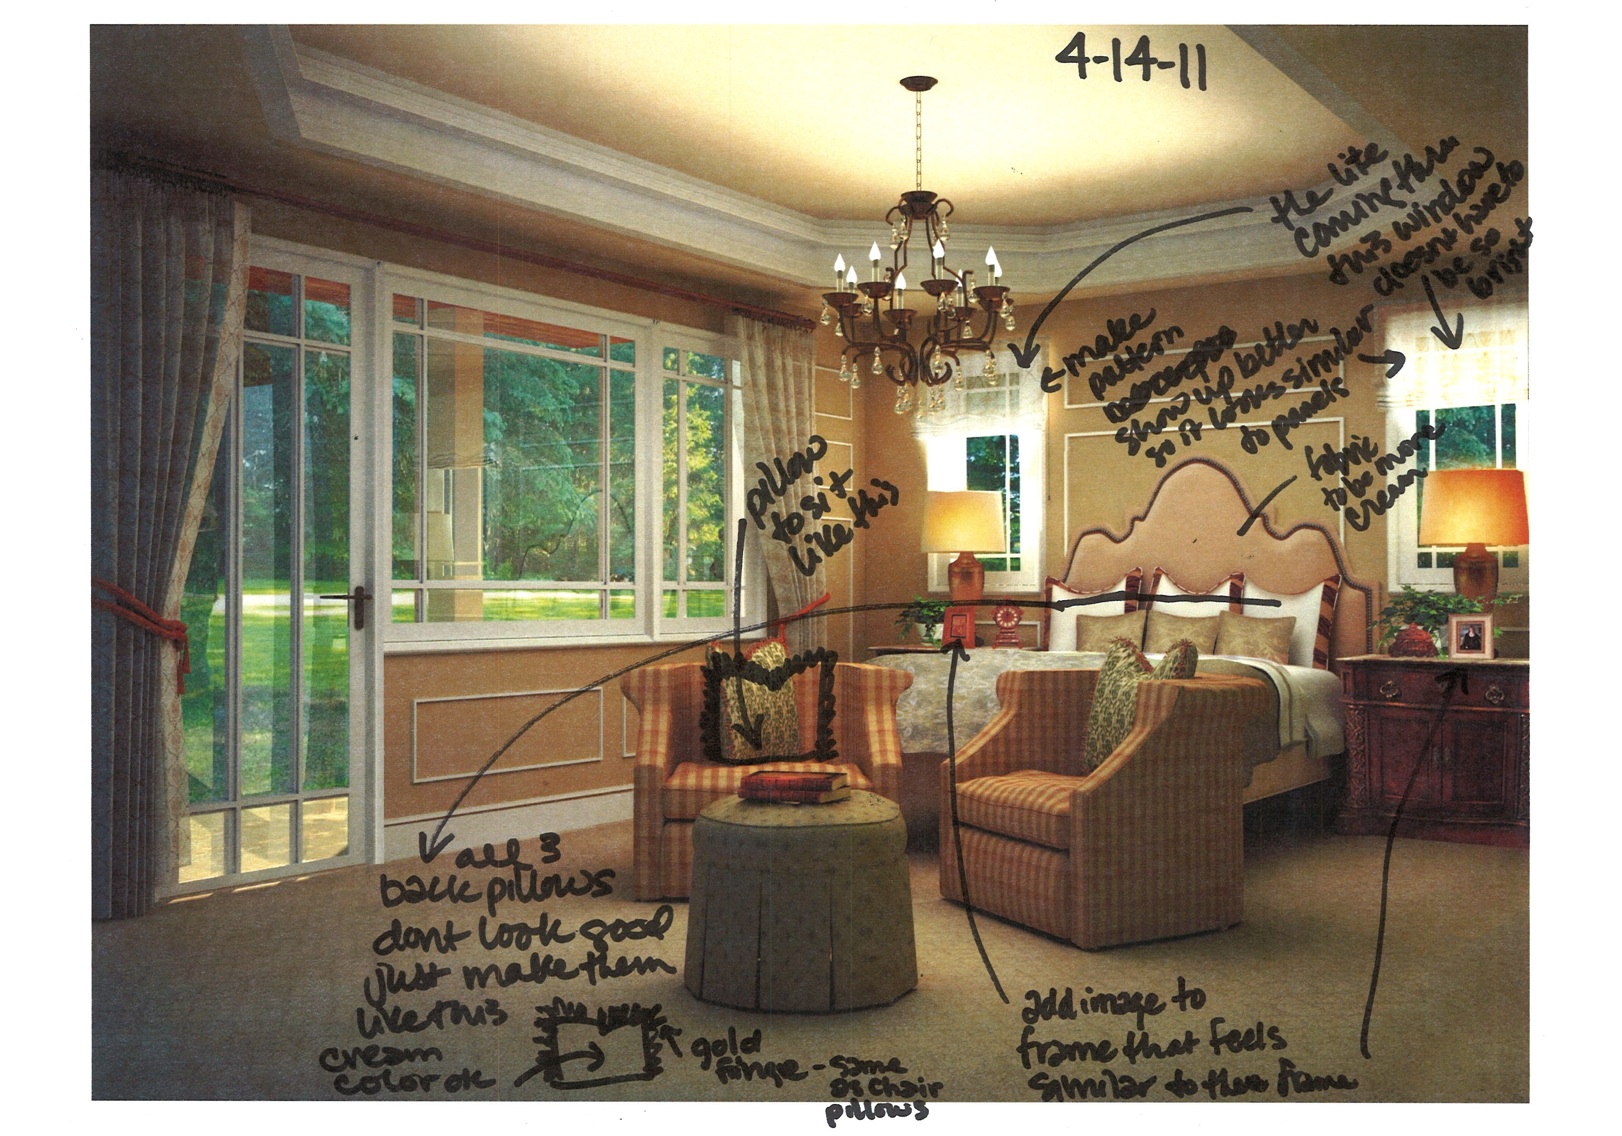 4-14-11
the lite
coming thru
this window
doesnt have to
be so
bright
make
pattern
show up better
so it looks similar
to panels
fabric
to be more
cream
pillow
to sit
like this
all 3
back pillows
dont look good
just make them
like this
cream
color ok
gold
fringe - same
as chair
pillows
add image to
frame that feels
similar to this frame